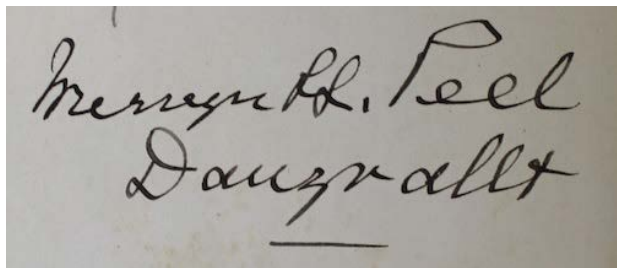 Mervyn Ll. Peel
Danyrallt